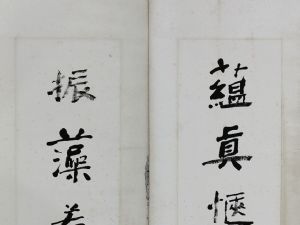 蘊真愜
振藻若